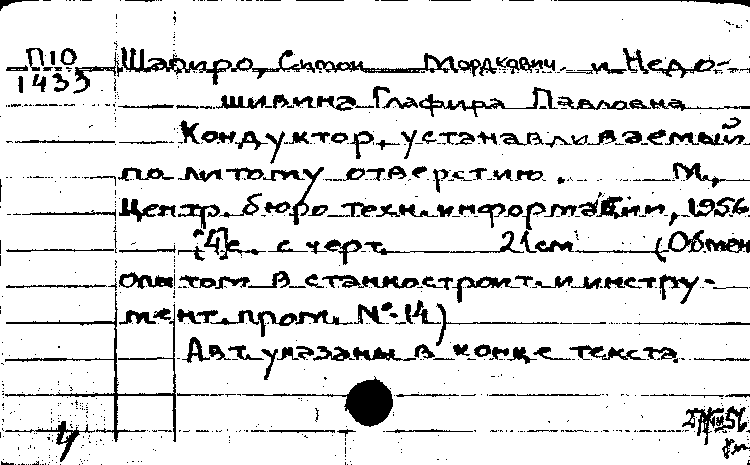 П10
1433
Шапиро, Симон Мордкович и Недо-
шивина Глафира Павловна
Кондуктор, устанавливаемый
по литому отверстию. М.,
Центр. бюро техн. информации, 1956
[4]с. с черт. 21см (Обмен
опытом в станкостроит. и инстру-
мент. пром. №-14)
Авт. указаны в конце текста